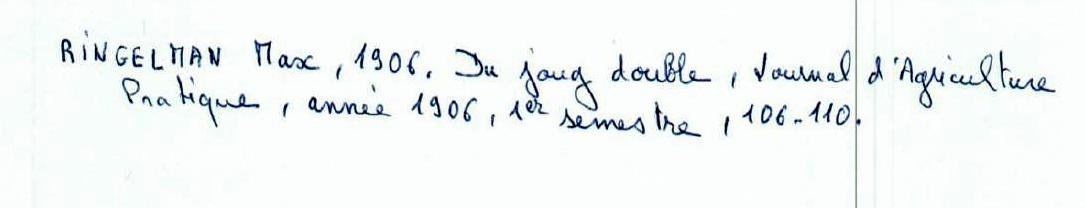 RINGELMAN Max, 1906. Du joug double, Journal d'Agriculture
Pratique, année 1906, 1er semestre, 106-110.